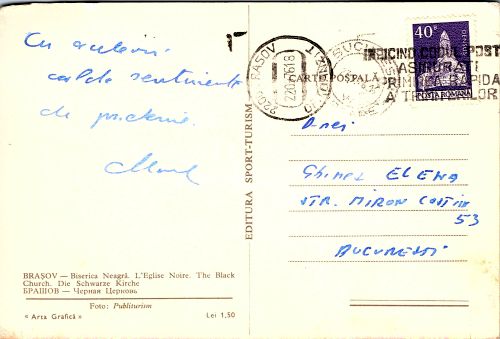 Cu aceleași
calde sentimente
de prietenie.
BRAȘOV — Biserica Neagră. L'Eglise Noire. The Black
Church. Die Schwarze Kirche
БРАШОВ — Черная Церковь
Foto: Publiturism
« Arta Grafică » Lei 1,50
EDITURA SPORT-TURISM
CARTE POȘTALĂ
BRASOV
40
POSTA ROMANA
CODUL POST
ASIGURATI
RAPIDA
A TRIMITERILOR
Dnei
Ghinea ELENA
STR. MIRON COSTIN
53
BUCUREȘTI